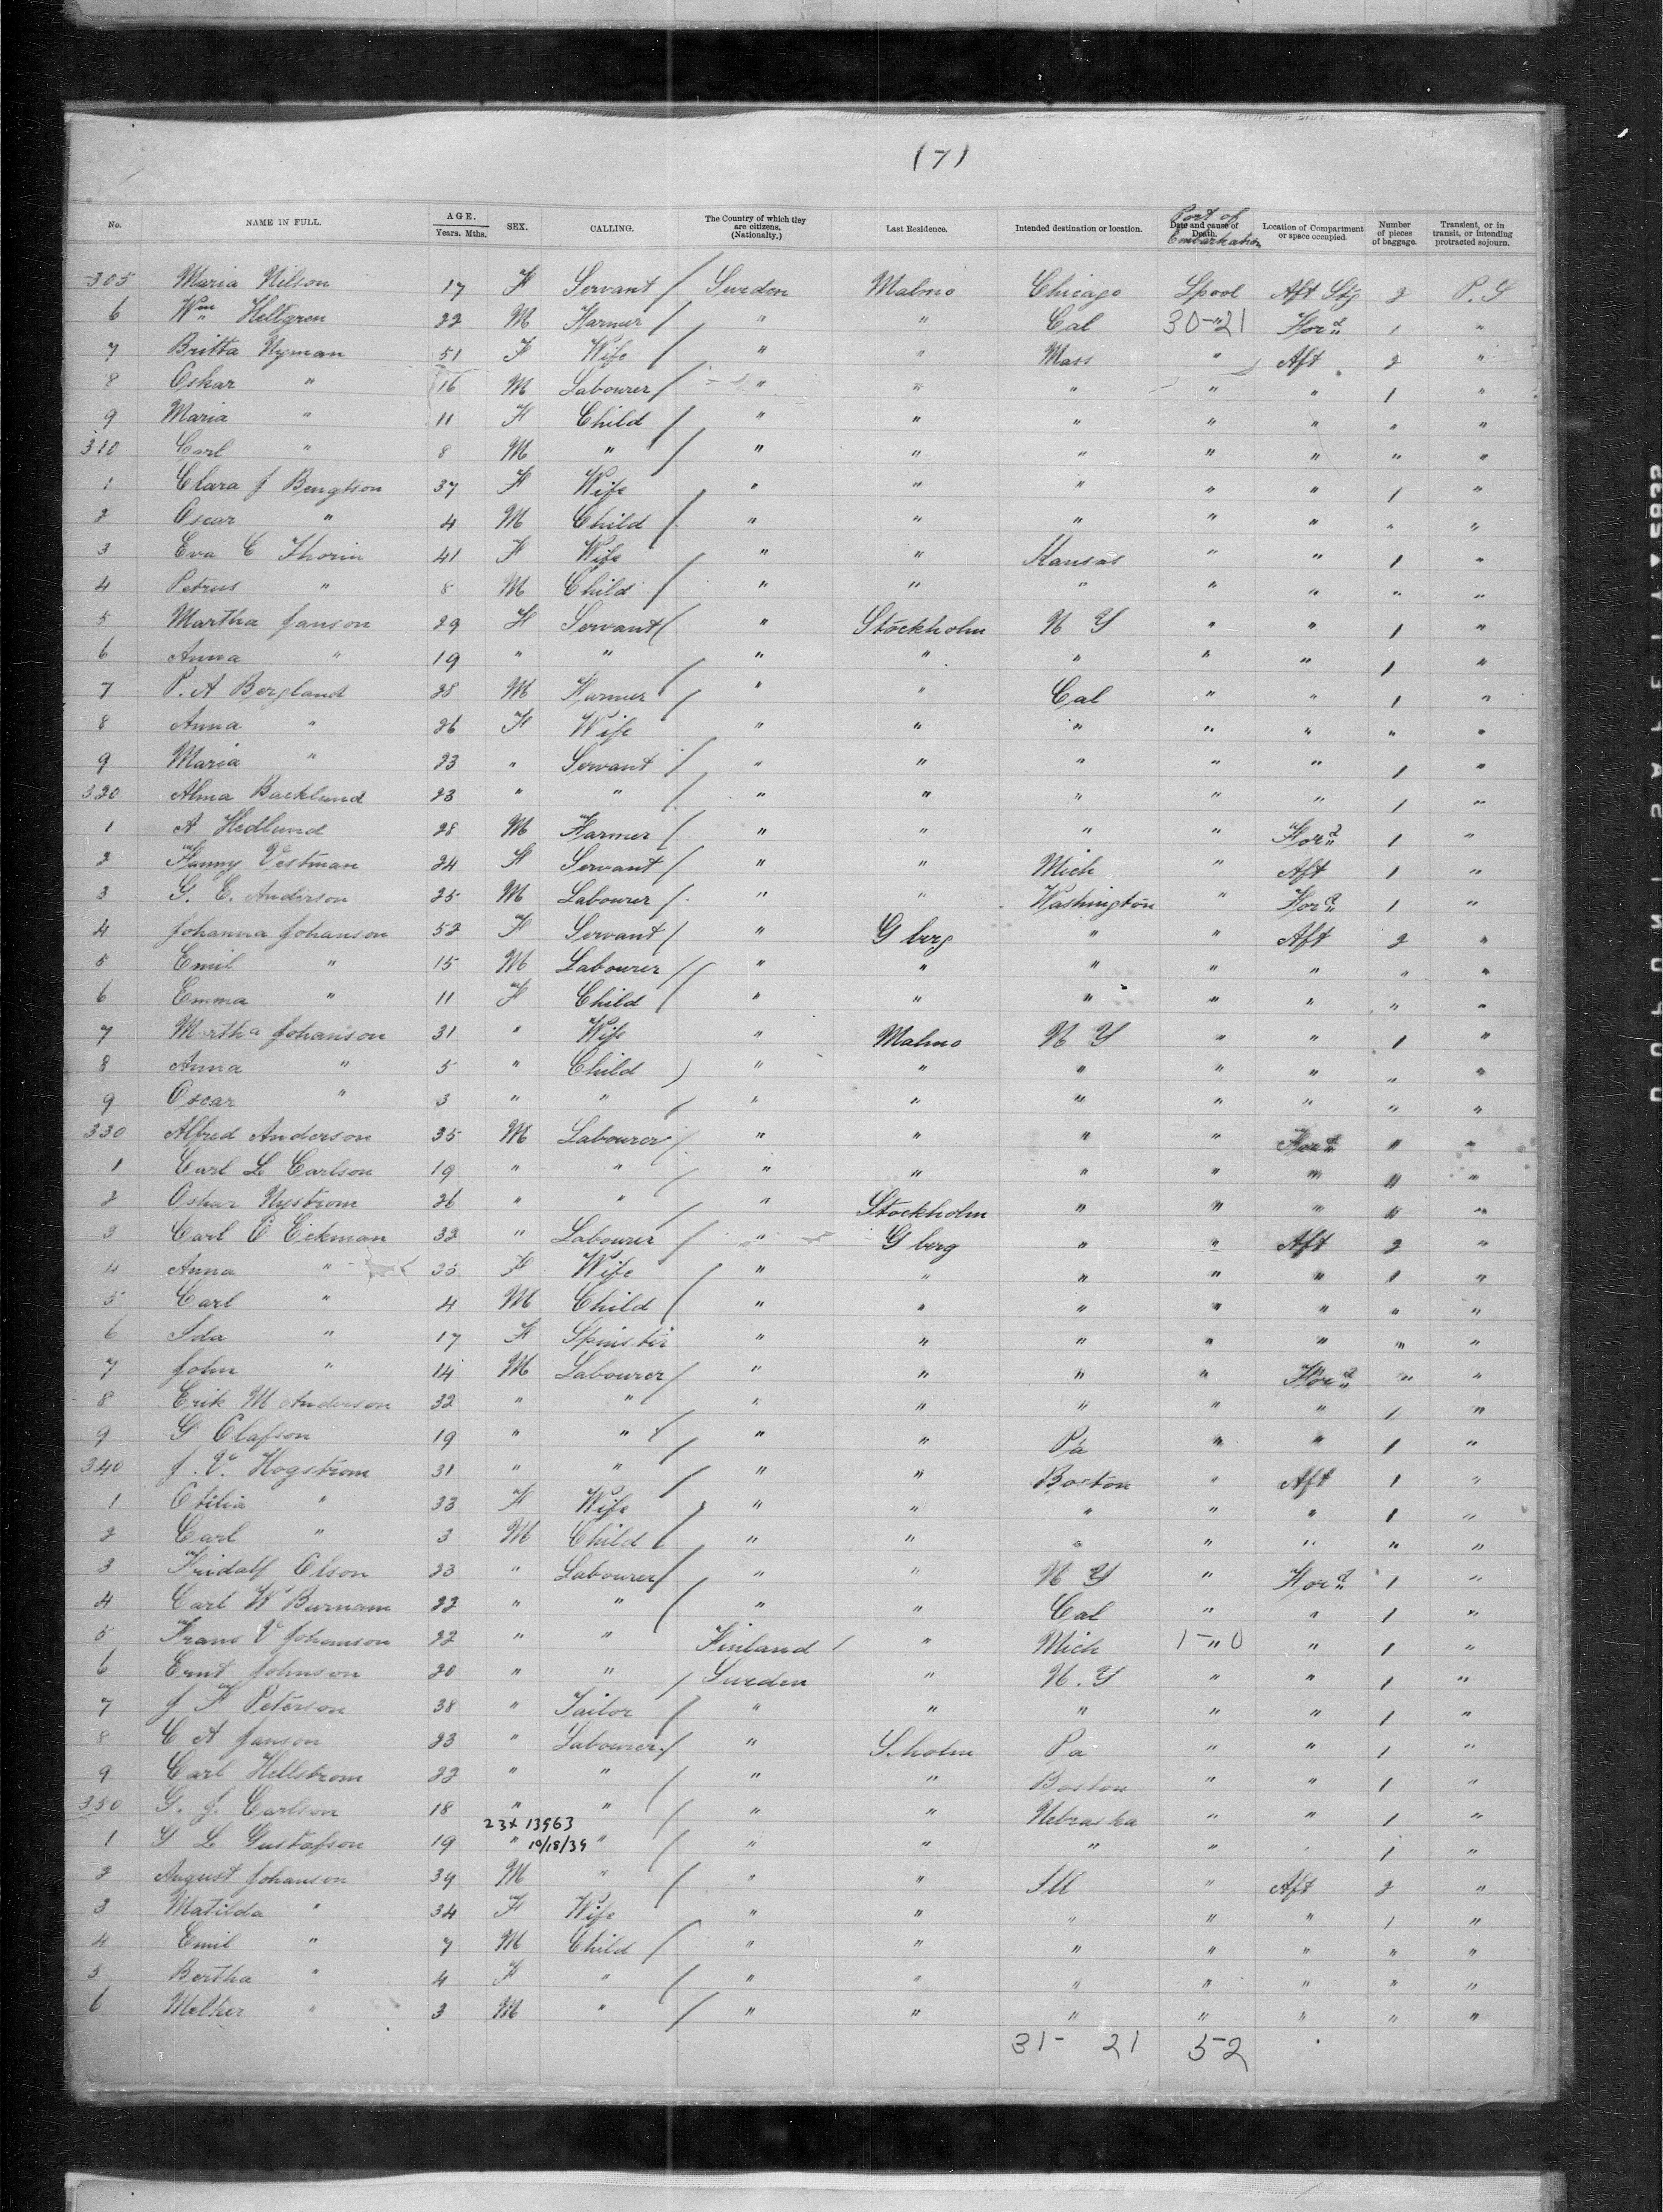 (7)
No. NAME IN FULL. AGE. Years. Mths. SEX. CALLING. The Country of which they are citizens. (Nationality.) Last Residence. Intended destination or location. Date and cause of Death. Port of Embarkation Location of Compartment or space occupied. Number of pieces of baggage. Transient, or in transit, or intending protracted sojourn.
305 Maria Nilson 17 F Servant / Sweden Malmo Chicago Lpool Aft Stg 2 P. S
6 Wm Hellgren 22 M Farmer / " " Cal 30-21 " Ford 1 "
7 Britta Nyman 51 F Wife / " " Mass " Aft 2 "
8 Oskar " 16 M Labourer / " " " " " 1 "
9 Maria " 11 F Child / " " " " " " "
310 Carl " 8 M " / " " " " " " "
1 Clara J Bengtson 37 F Wife / " " " " " 1 "
2 Oscar " 4 M Child / " " " " " " "
3 Eva C Thorin 41 F Wife / " " Kansas " " 1 "
4 Petrus " 8 M Child / " " " " " " "
5 Martha Janson 29 F Servant / " Stockholm N Y " " 1 "
6 Anna " 19 " " / " " " " " 1 "
7 P. A Bergland 28 M Farmer / " " Cal " " 1 "
8 Anna " 26 F Wife " " " " " " "
9 Maria " 23 " Servant / " " " " " 1 "
320 Alma Backlund 23 " " / " " " " " 1 "
1 A Hedlund 28 M Farmer / " " " " Ford 1 "
2 Fanny Vestman 24 F Servant / " " Mich " Aft 1 "
3 G. E. Anderson 25 M Labourer / " " Washington " Ford 1 "
4 Johanna Johanson 52 F Servant / " G berg " " Aft 2 "
5 Emil " 15 M Labourer / " " " " " " "
6 Emma " 11 F Child / " " " " " " "
7 Martha Johanson 31 " Wife " Malmo N Y " " 1 "
8 Anna " 5 " Child ) " " " " " " "
9 Oscar " 3 " " / " " " " " " "
330 Alfred Anderson 35 M Labourer / " " " " Ford " "
1 Carl L Carlson 19 " " / " " " " " " "
2 Oskar Nystrom 26 " " / " Stockholm " " " " "
3 Carl O Eckman 32 " Labourer / " G berg " " Aft 2 "
4 Anna " 35 F Wife / " " " " " 1 "
5 Carl " 4 M Child / " " " " " " "
6 Ida " 17 F Spinster " " " " " " "
7 John " 14 M Labourer / " " " " Ford " "
8 Erik M Anderson 32 " " / " " " " " 1 "
9 G Olafson 19 " " / " " Pa " " 1 "
340 J. V. Hogstrom 31 " " / " " Boston " Aft 1 "
1 Otilia " 33 F Wife / " " " " " 1 "
2 Carl " 3 M Child / " " " " " " "
3 Fridalf Olson 23 " Labourer / " " N Y " Ford 1 "
4 Carl W Burnam 22 " " / " " Cal " " 1 "
5 Frans V Johanson 22 " " Finland / " Mich 1-"0 " 1 "
6 Ernt Johnson 20 " " / Sweden " N. Y " " 1 "
7 J F Peterson 38 " Tailor / " " " " " 1 "
8 C A Janson 23 " Labourer / " S.holm Pa " " 1 "
9 Carl Hellstrom 22 " " / " " Boston " " 1 "
350 G. J. Carlson 18 " " / " " Nebraska " " 1 "
23x 13963
1 G L Gustafson 19 " 10/18/39 " / " " " " " 1 "
2 August Johanson 39 M " / " " Ill " Aft 2 "
3 Matilda " 34 F Wife " " " " " 1 "
4 Emil " 7 M Child / " " " " " " "
5 Bertha " 4 F " / " " " " " " "
6 Melker " 3 M " / " " " " " " "
31- 21 52